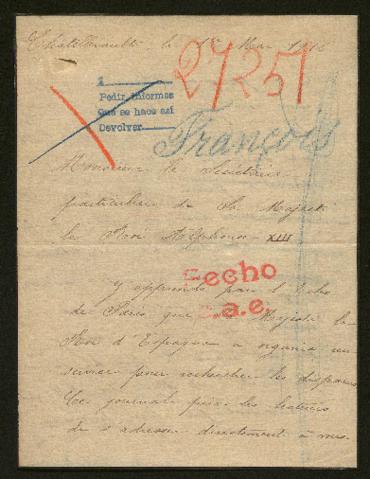 Châtellerault le 1er Mai 1916
27251
1
Pedir informes
Que se hace así
Devolver
François
Monsieur le Secrétaire
particulier de Sa Majesté
le Roi Alphonse XIII
Hecho
c.a.e.
J'apprends par l'Echo
de Paris que Majesté le
Roi d'Espagne a organisé un
service pour rechercher les disparus
Ce journal prie les lecteurs
de s'adresser directement à